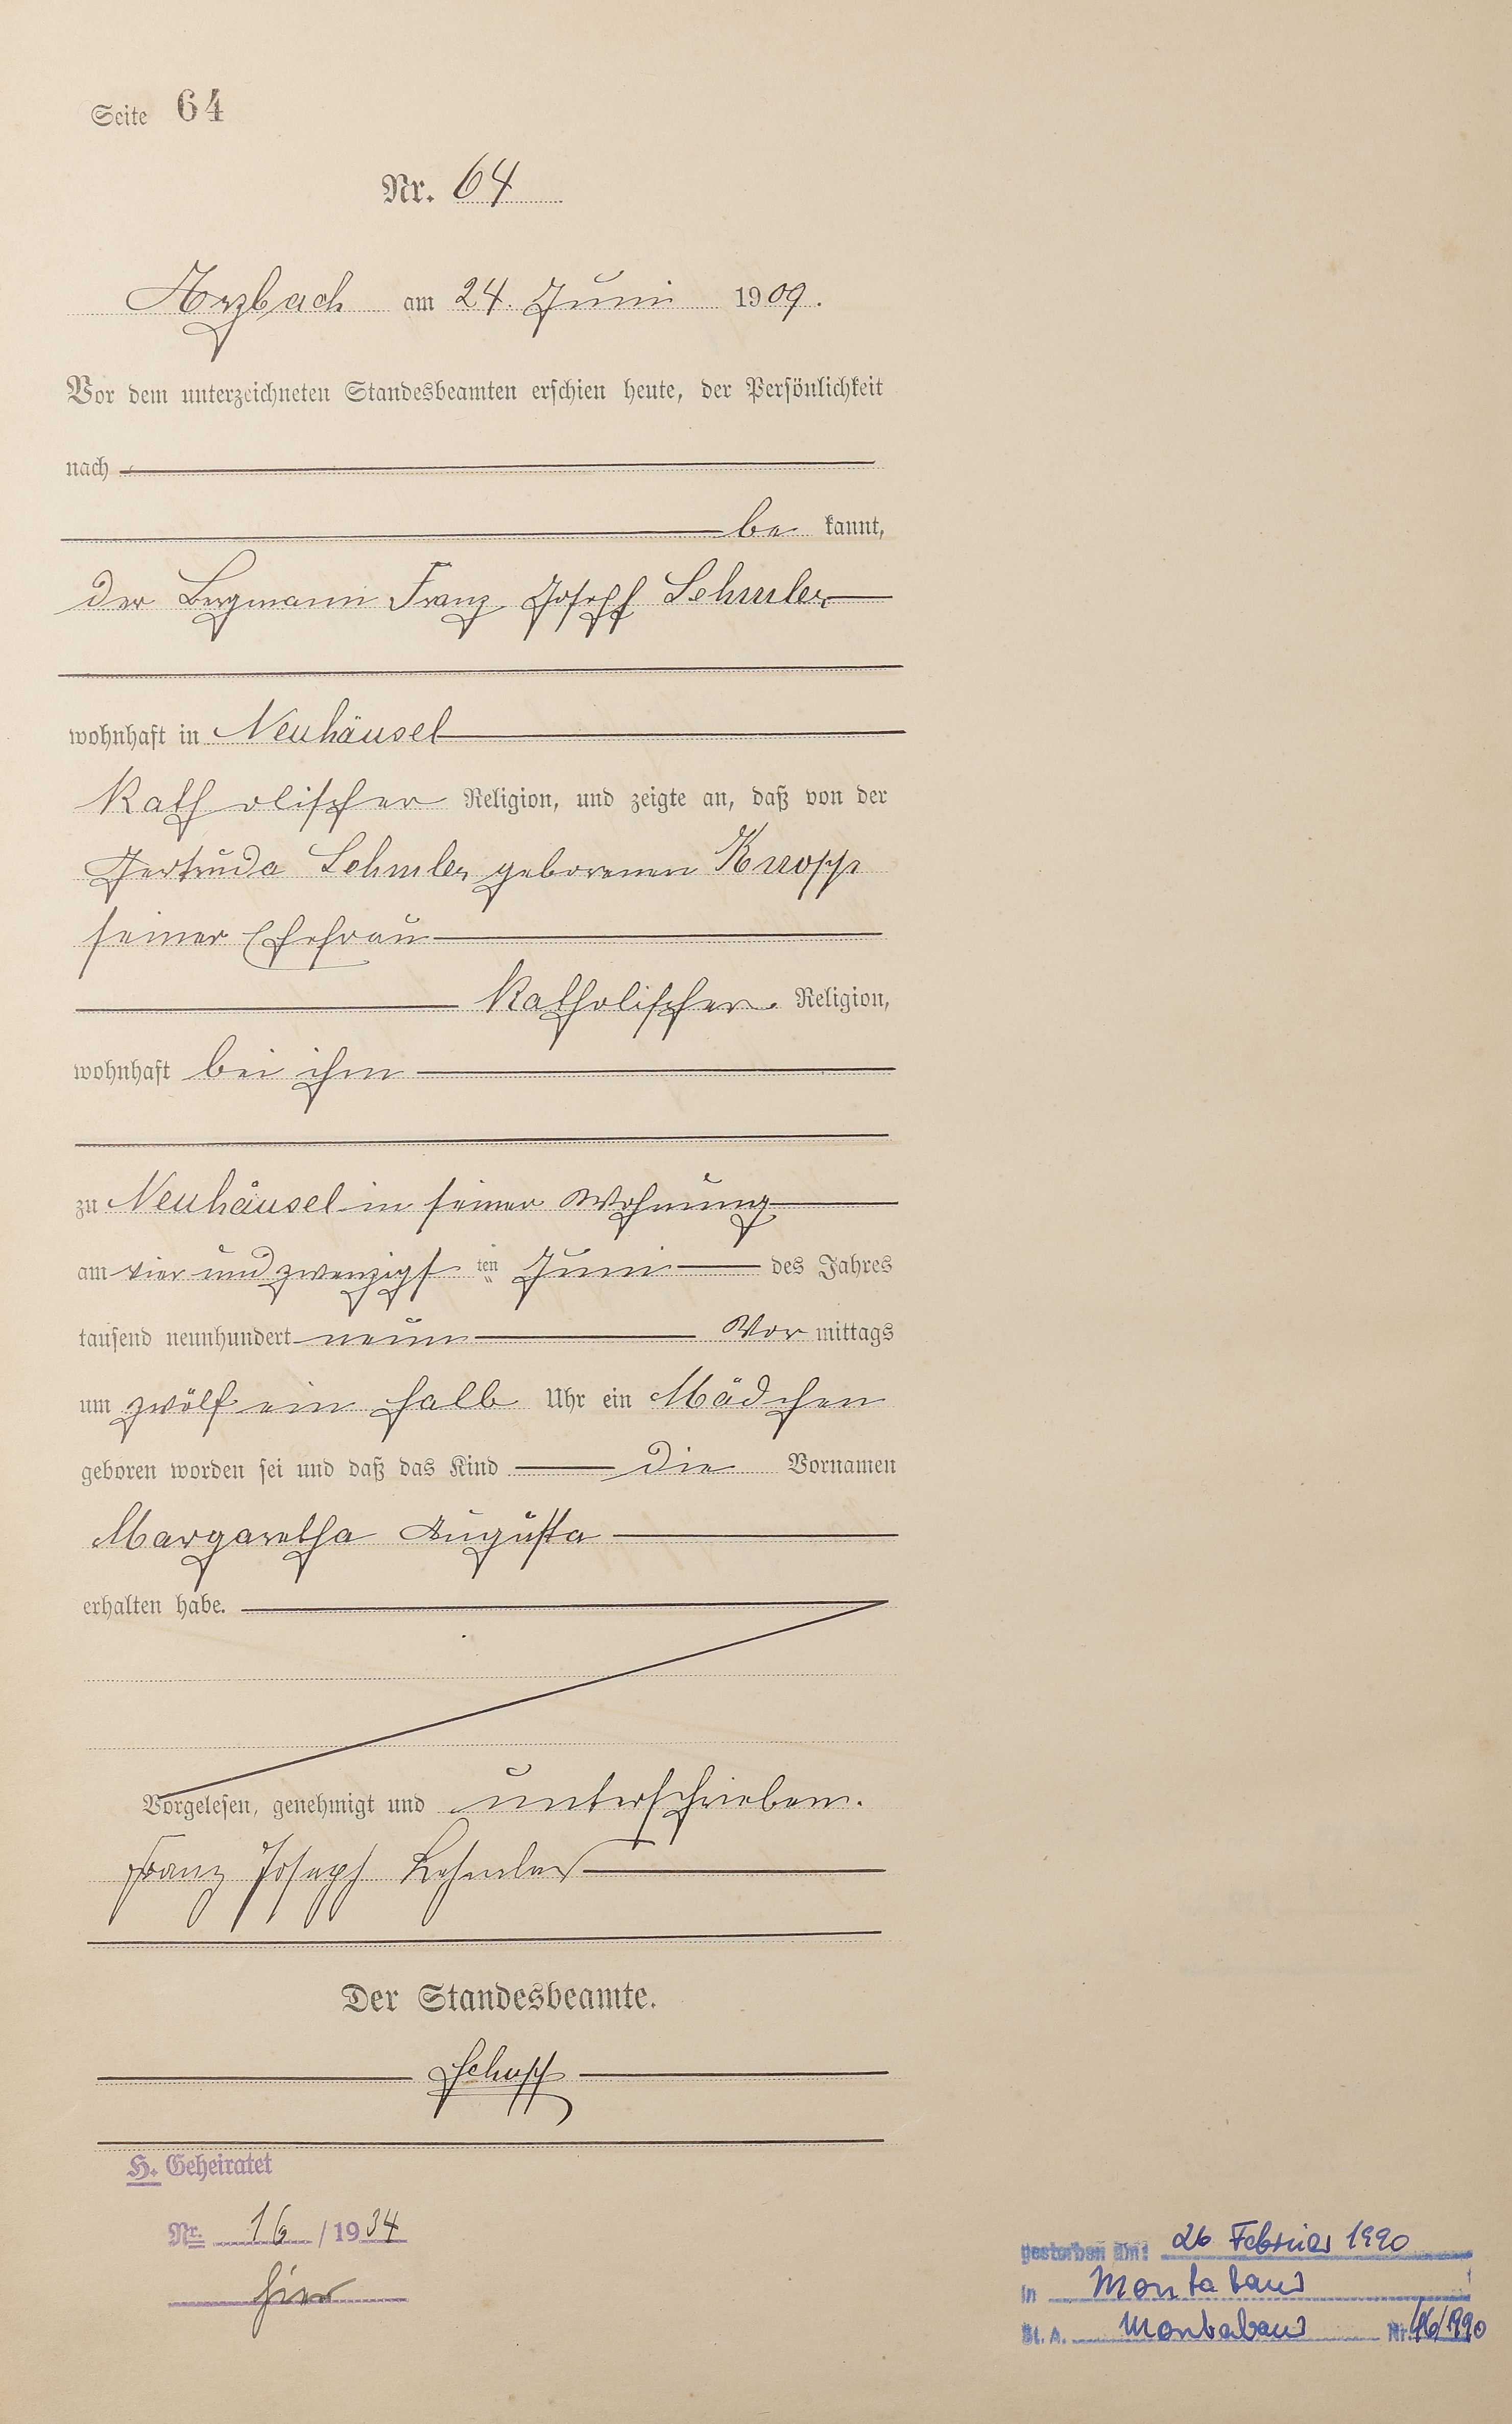 Seite 64
Nr. 64
Arzbach am 24. Juni 1909.
Vor dem unterzeichneten Standesbeamten erschien heute, der Persönlichkeit
nach
be kannt,
der Bergmann Franz Joseph Lehmler
wohnhaft in Neuhäusel
katholischer Religion, und zeigte an, daß von der
Gertruda Lehmler geborenen Knopp
seiner Ehefrau
katholischer Religion,
wohnhaft bei ihm
zu Neuhäusel in seiner Wohnung
am vier und zwanzigsten Juni des Jahres
tausend neunhundert neun Vormittags
um zwölf ein halb Uhr ein Mädchen
geboren worden sei und daß das Kind die Vornamen
Margaretha Augusta
erhalten habe.
Vorgelesen, genehmigt und unterschrieben.
Franz Joseph Lehmler
Der Standesbeamte.
Schupp
H. Geheiratet
Nr. 16 / 1934
hier
gestorben am: 26 Februar 1990
in Montabaur
St. A. Montabaur Nr. 46/1990